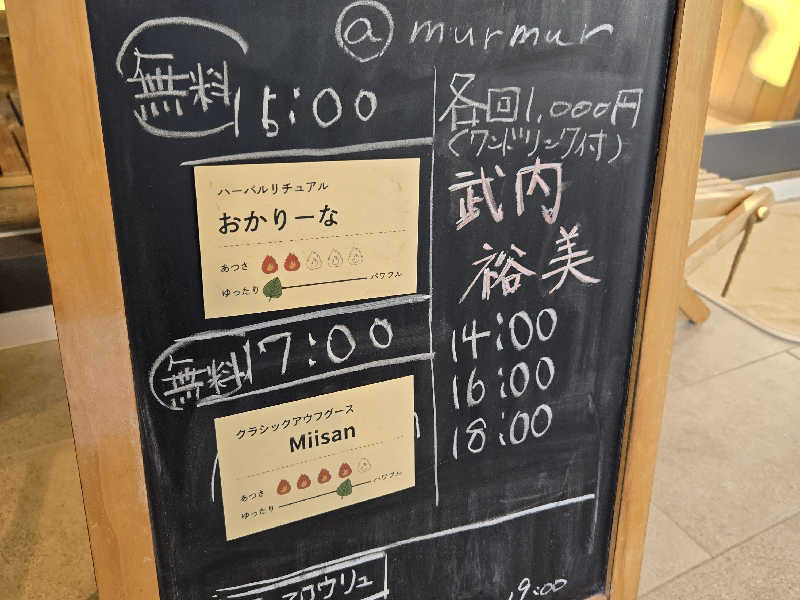 @murmur
無料 15:00
ハーバルリチュアル
おかりーな
あつさ
ゆったり パワフル
無料 17:00
クラシックアウフグース
Miisan
あつさ
ゆったり パワフル
各回1,000円
(ワンドリンク付)
武内
裕美
14:00
16:00
18:00
ロウリュ
19:00